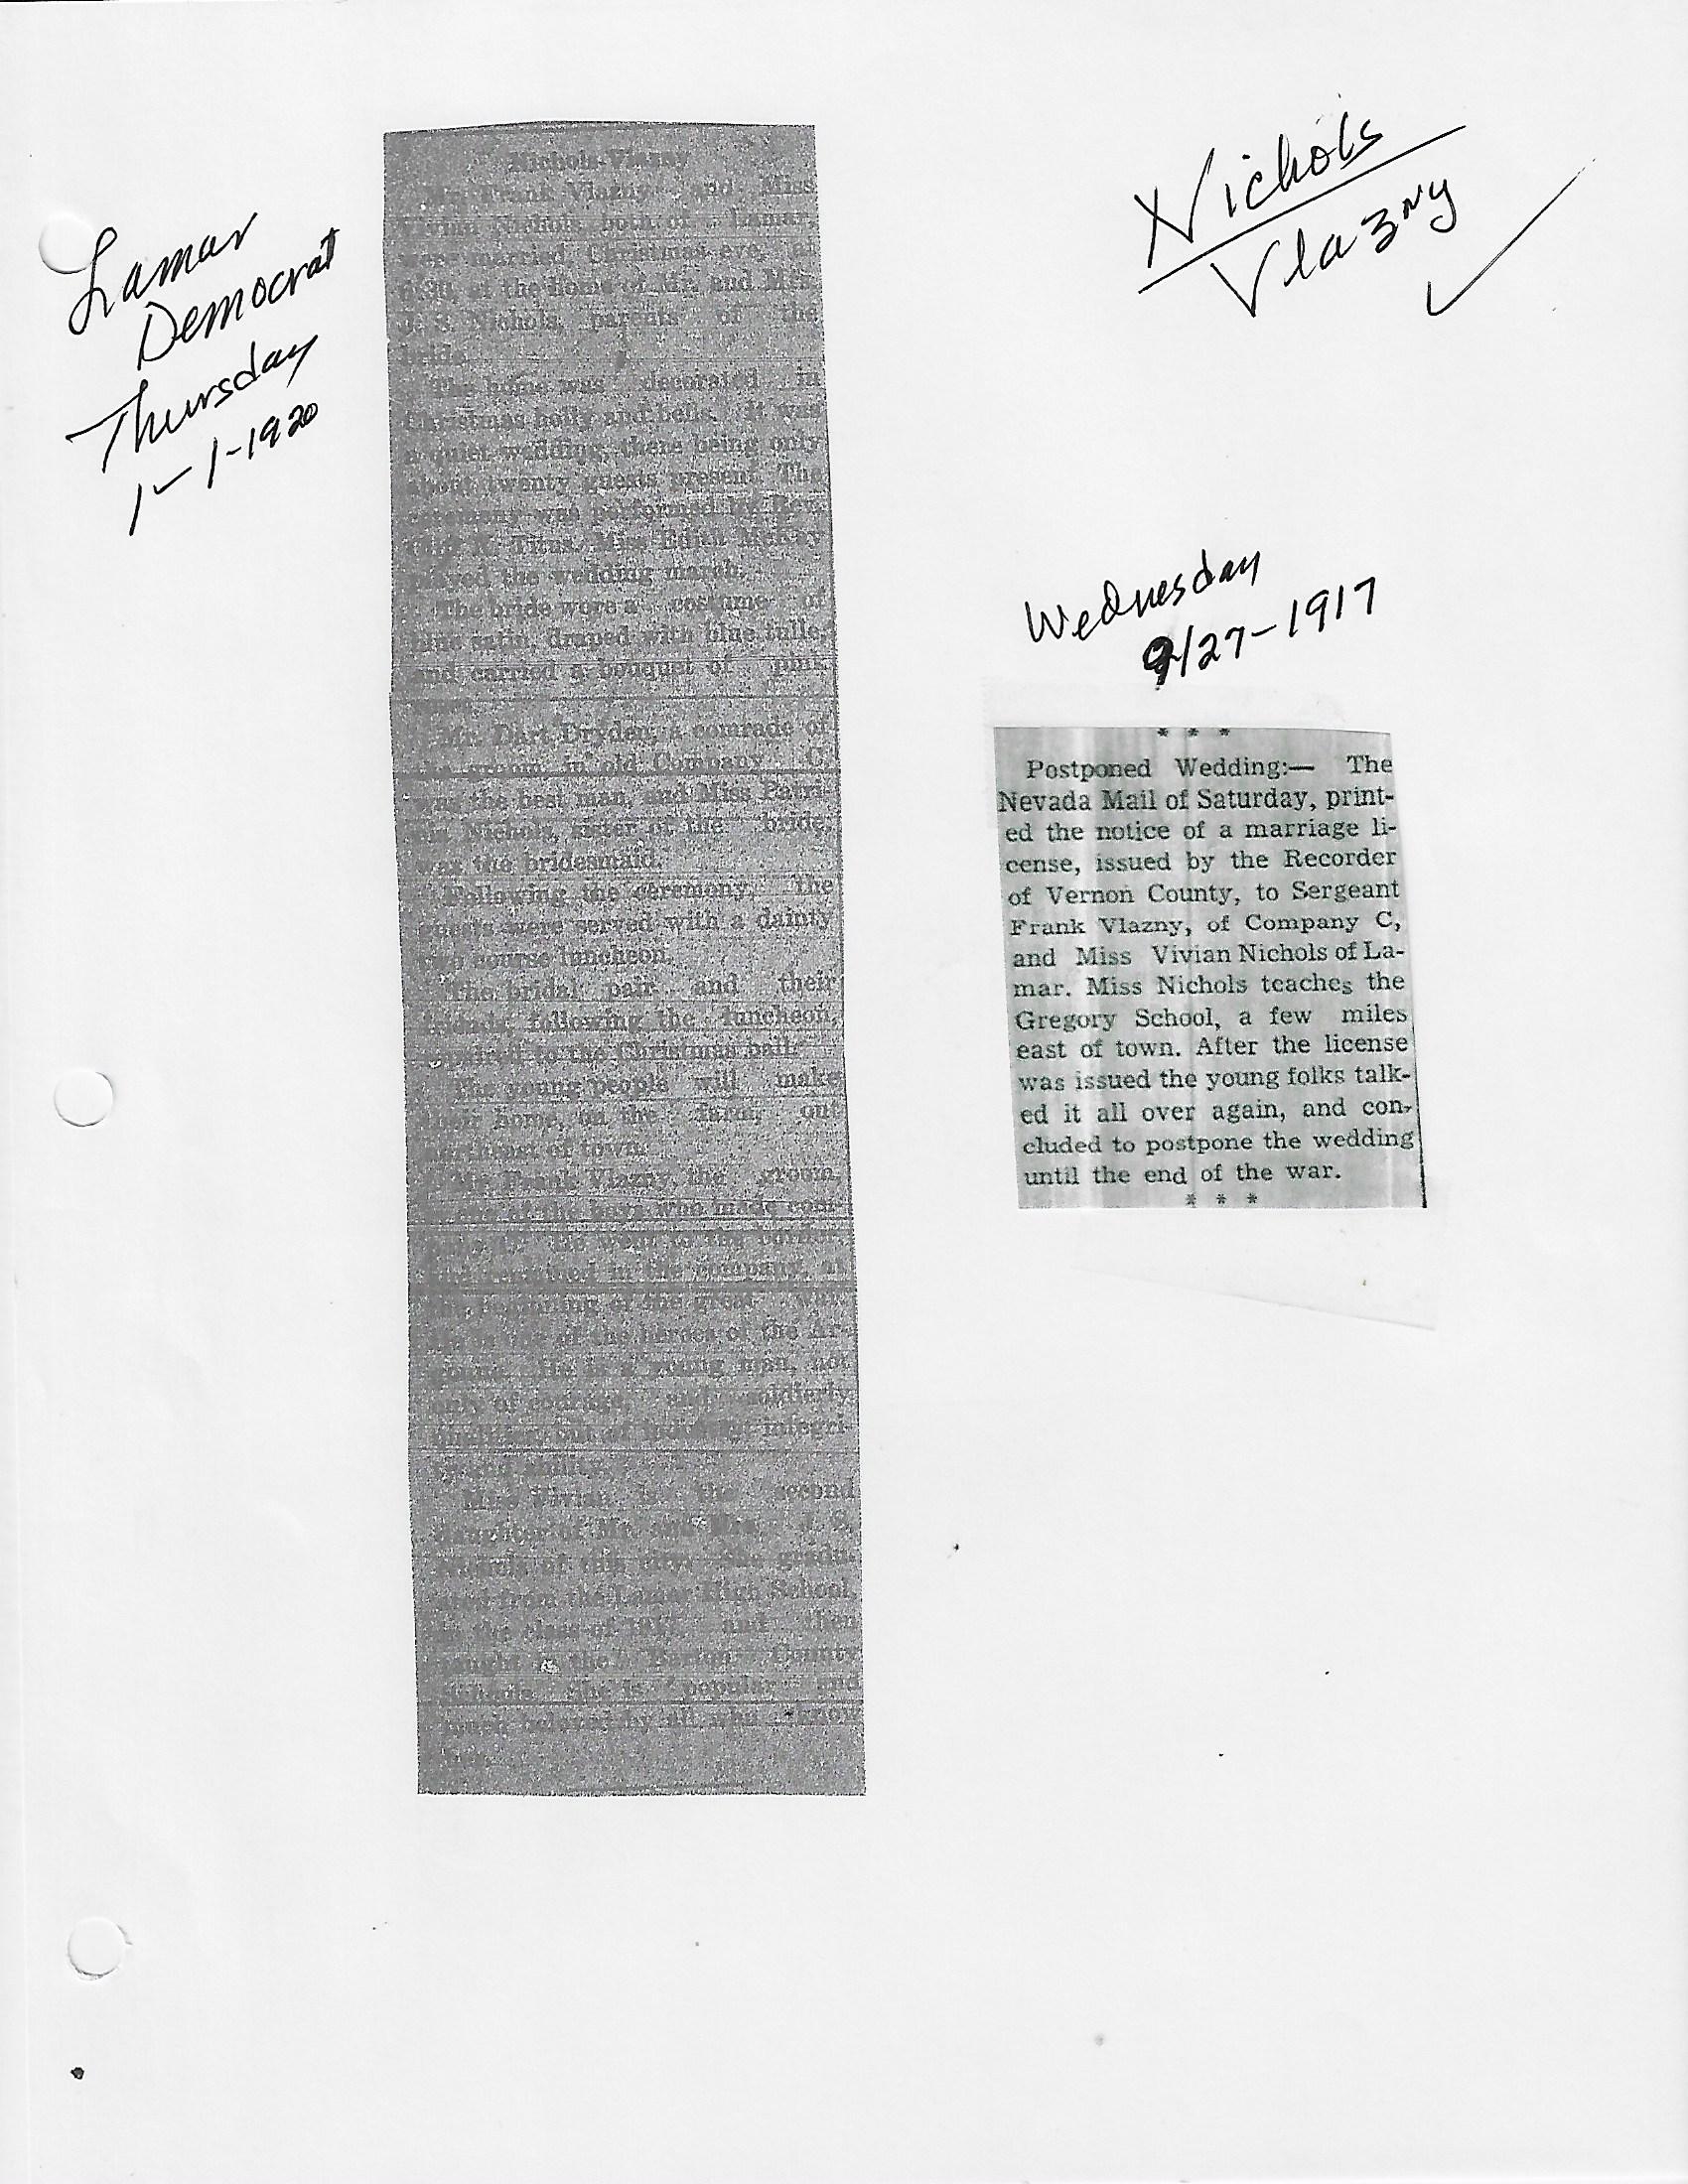 Lamar
Democrat
Thursday
1-1-1920
Nichols
Vlazny
Nichols-Vlazny
Mr. Frank Vlazny and Miss
Vivian Nichols, both of Lamar,
were married Christmas eve, at
at the home of Mr. and Mrs.
J. S. Nichols, parents of the
bride.
The home was decorated in
Christmas holly and bells. It was
a quiet wedding, there being only
about twenty guests present. The
ceremony was performed by Rev.
Titus. Miss Edith
played the wedding march.
The bride wore a costume of
blue satin, draped with blue tulle,
and carried a bouquet of pink
Mr. Dart Dryden, a comrade of
the groom, in old Company C,
was the best man, and Miss
Nichols, sister of the bride,
was the bridesmaid.
Following the ceremony, the
guests were served with a dainty
two course luncheon.
The bridal pair and their
friends, following the luncheon,
repaired to the Christmas ball.
The young people will make
their home, on the farm, out
northeast of town.
Mr. Frank Vlazny, the groom,
is one of the boys who made
He went to the
and remained in the company, at
the beginning of the great war.
He is one of the heroes of the Ar-
gonne. He is a young man, not
only of courage and soldierly
qualities, but of integri-
ty and
Miss Vivian is the second
daughter of Mr. and Mrs. J. S.
Nichols of this city. She gradu-
ated from the Lamar High School,
in the class of and then
taught in the Barton County
schools. She is popular and
much beloved by all who know
her.
Wednesday
9/27-1917
* * *
Postponed Wedding:— The
Nevada Mail of Saturday, print-
ed the notice of a marriage li-
cense, issued by the Recorder
of Vernon County, to Sergeant
Frank Vlazny, of Company C,
and Miss Vivian Nichols of La-
mar. Miss Nichols teaches the
Gregory School, a few miles
east of town. After the license
was issued the young folks talk-
ed it all over again, and con-
cluded to postpone the wedding
until the end of the war.
* * *